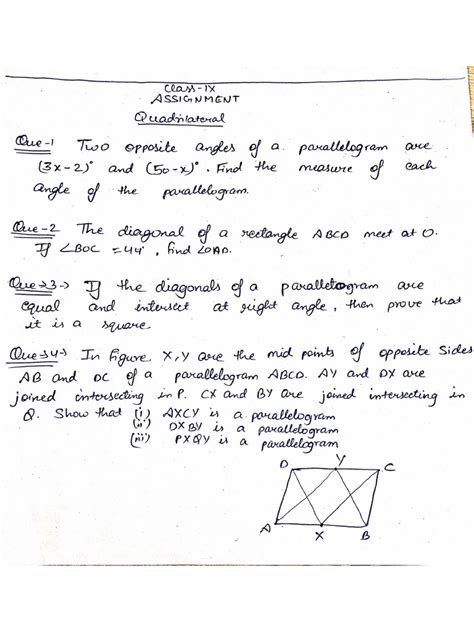 Class-IX
ASSIGNMENT
Quadrilateral
Que-1 Two opposite angles of a parallelogram are
(3x-2)° and (50-x)°. Find the measure of each
angle of the parallelogram.
Que-2 The diagonal of a rectangle ABCD meet at O.
If ∠BOC = 44°, find ∠OAD.
Que→3→ If the diagonals of a parallelogram are
equal and intersect at right angle, then prove that
it is a square.
Que→4→ In figure X, Y are the mid points of opposite sides
AB and DC of a parallelogram ABCD. AY and DX are
joined intersecting in P. CX and BY are joined intersecting in
Q. Show that (i) AXCY is a parallelogram
(ii) DXBY is a parallelogram
(iii) PXQY is a parallelogram
D Y C
A X B